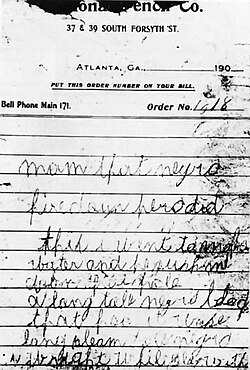 onal Pencil Co.
37 & 39 SOUTH FORSYTH ST.
ATLANTA, GA. 190
PUT THIS ORDER NUMBER ON YOUR BILL.
Bell Phone Main 171. Order No. 1018
mam that negro
hire down here did
this i went to make
water and he push me
down that hole
a long tall negro black
that hoo it wase
long sleam tall negro
i wright while play with